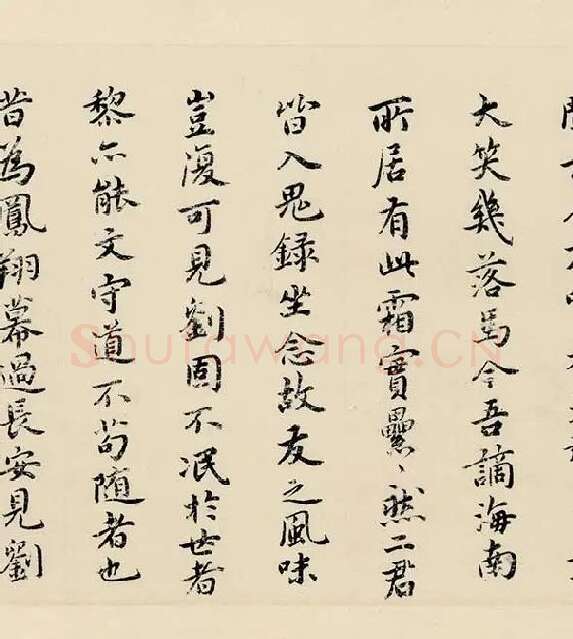 大笑幾落馬今吾謫海南
所居有此霜實纍〻然二君
皆入鬼録坐念故友之風味
豈復可見劉固不泯於世者
黎亦能文守道不苟隨者也
昔為鳳翔幕過長安見劉
Shufawang.CN